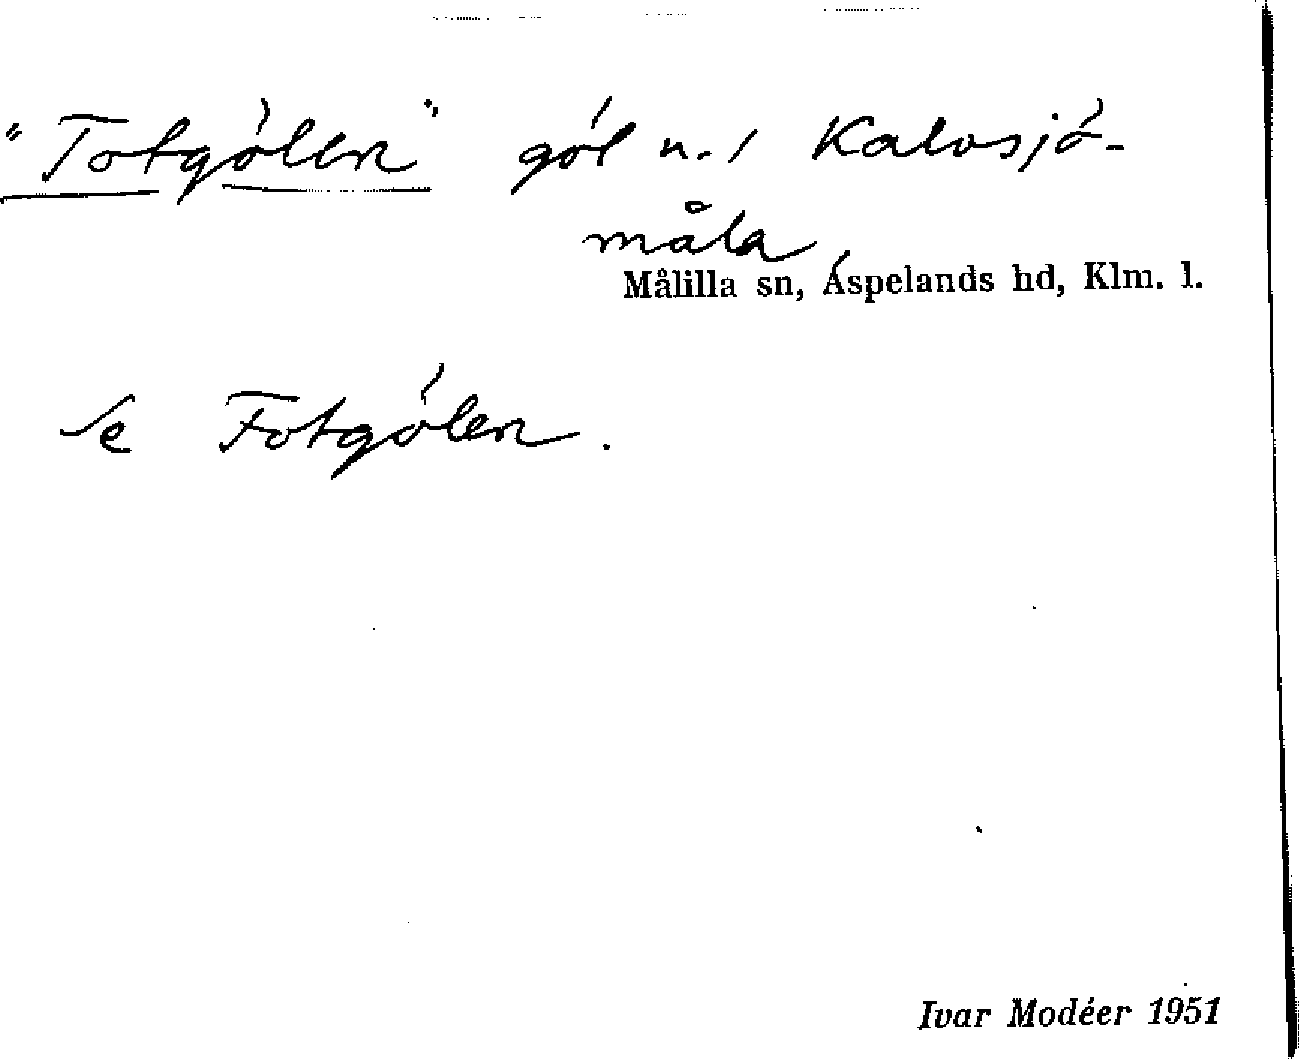 "Totgölen" göl n. / Kalvsjö-
måla
Målilla sn, Aspelands hd, Klm. l.
se Fotgölen.
Ivar Modéer 1951